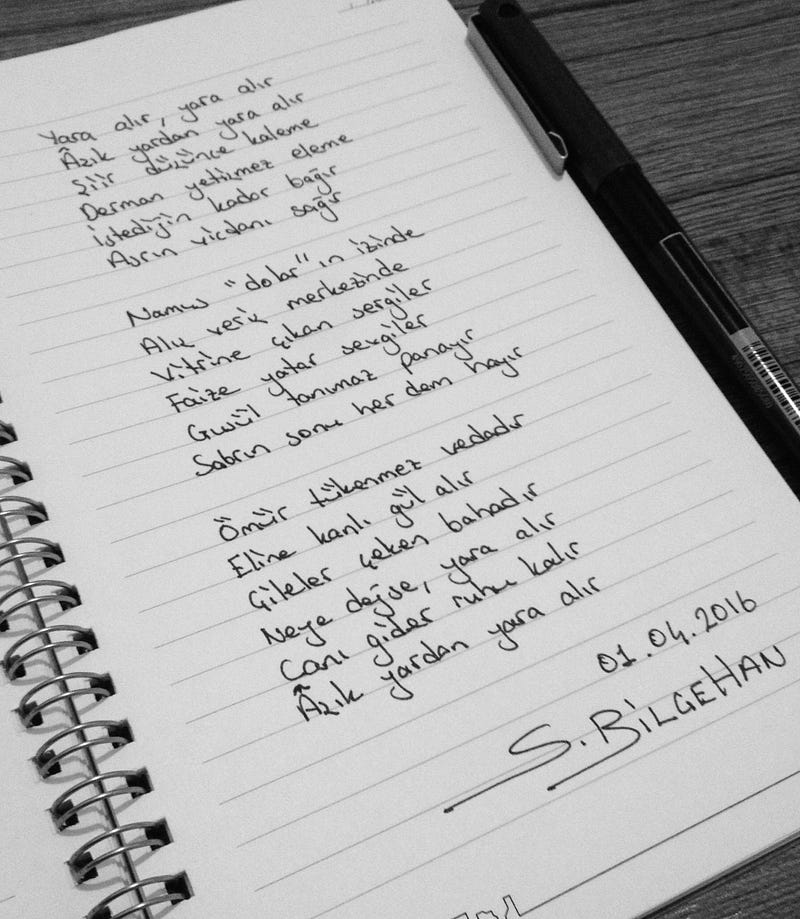 Yara alır, yara alır
Âşık yardan yara alır
Şiir düşünce kaleme
Derman yetişmez eleme
İstediğin kadar bağır
Asrın vicdanı sağır
Namus "dolar"ın izinde
Alış veriş merkezinde
Vitrine çıkan sergiler
Faize yatar sevgiler
Gusül tanımaz panayır
Sabrın sonu her dem hayır
Ömür tükenmez vedadır
Eline kanlı gül alır
Çileler çeken bahadır
Neye değse, yara alır
Canı gider ruhu kalır
Âşık yardan yara alır
01.04.2016
S. BİLGEHAN